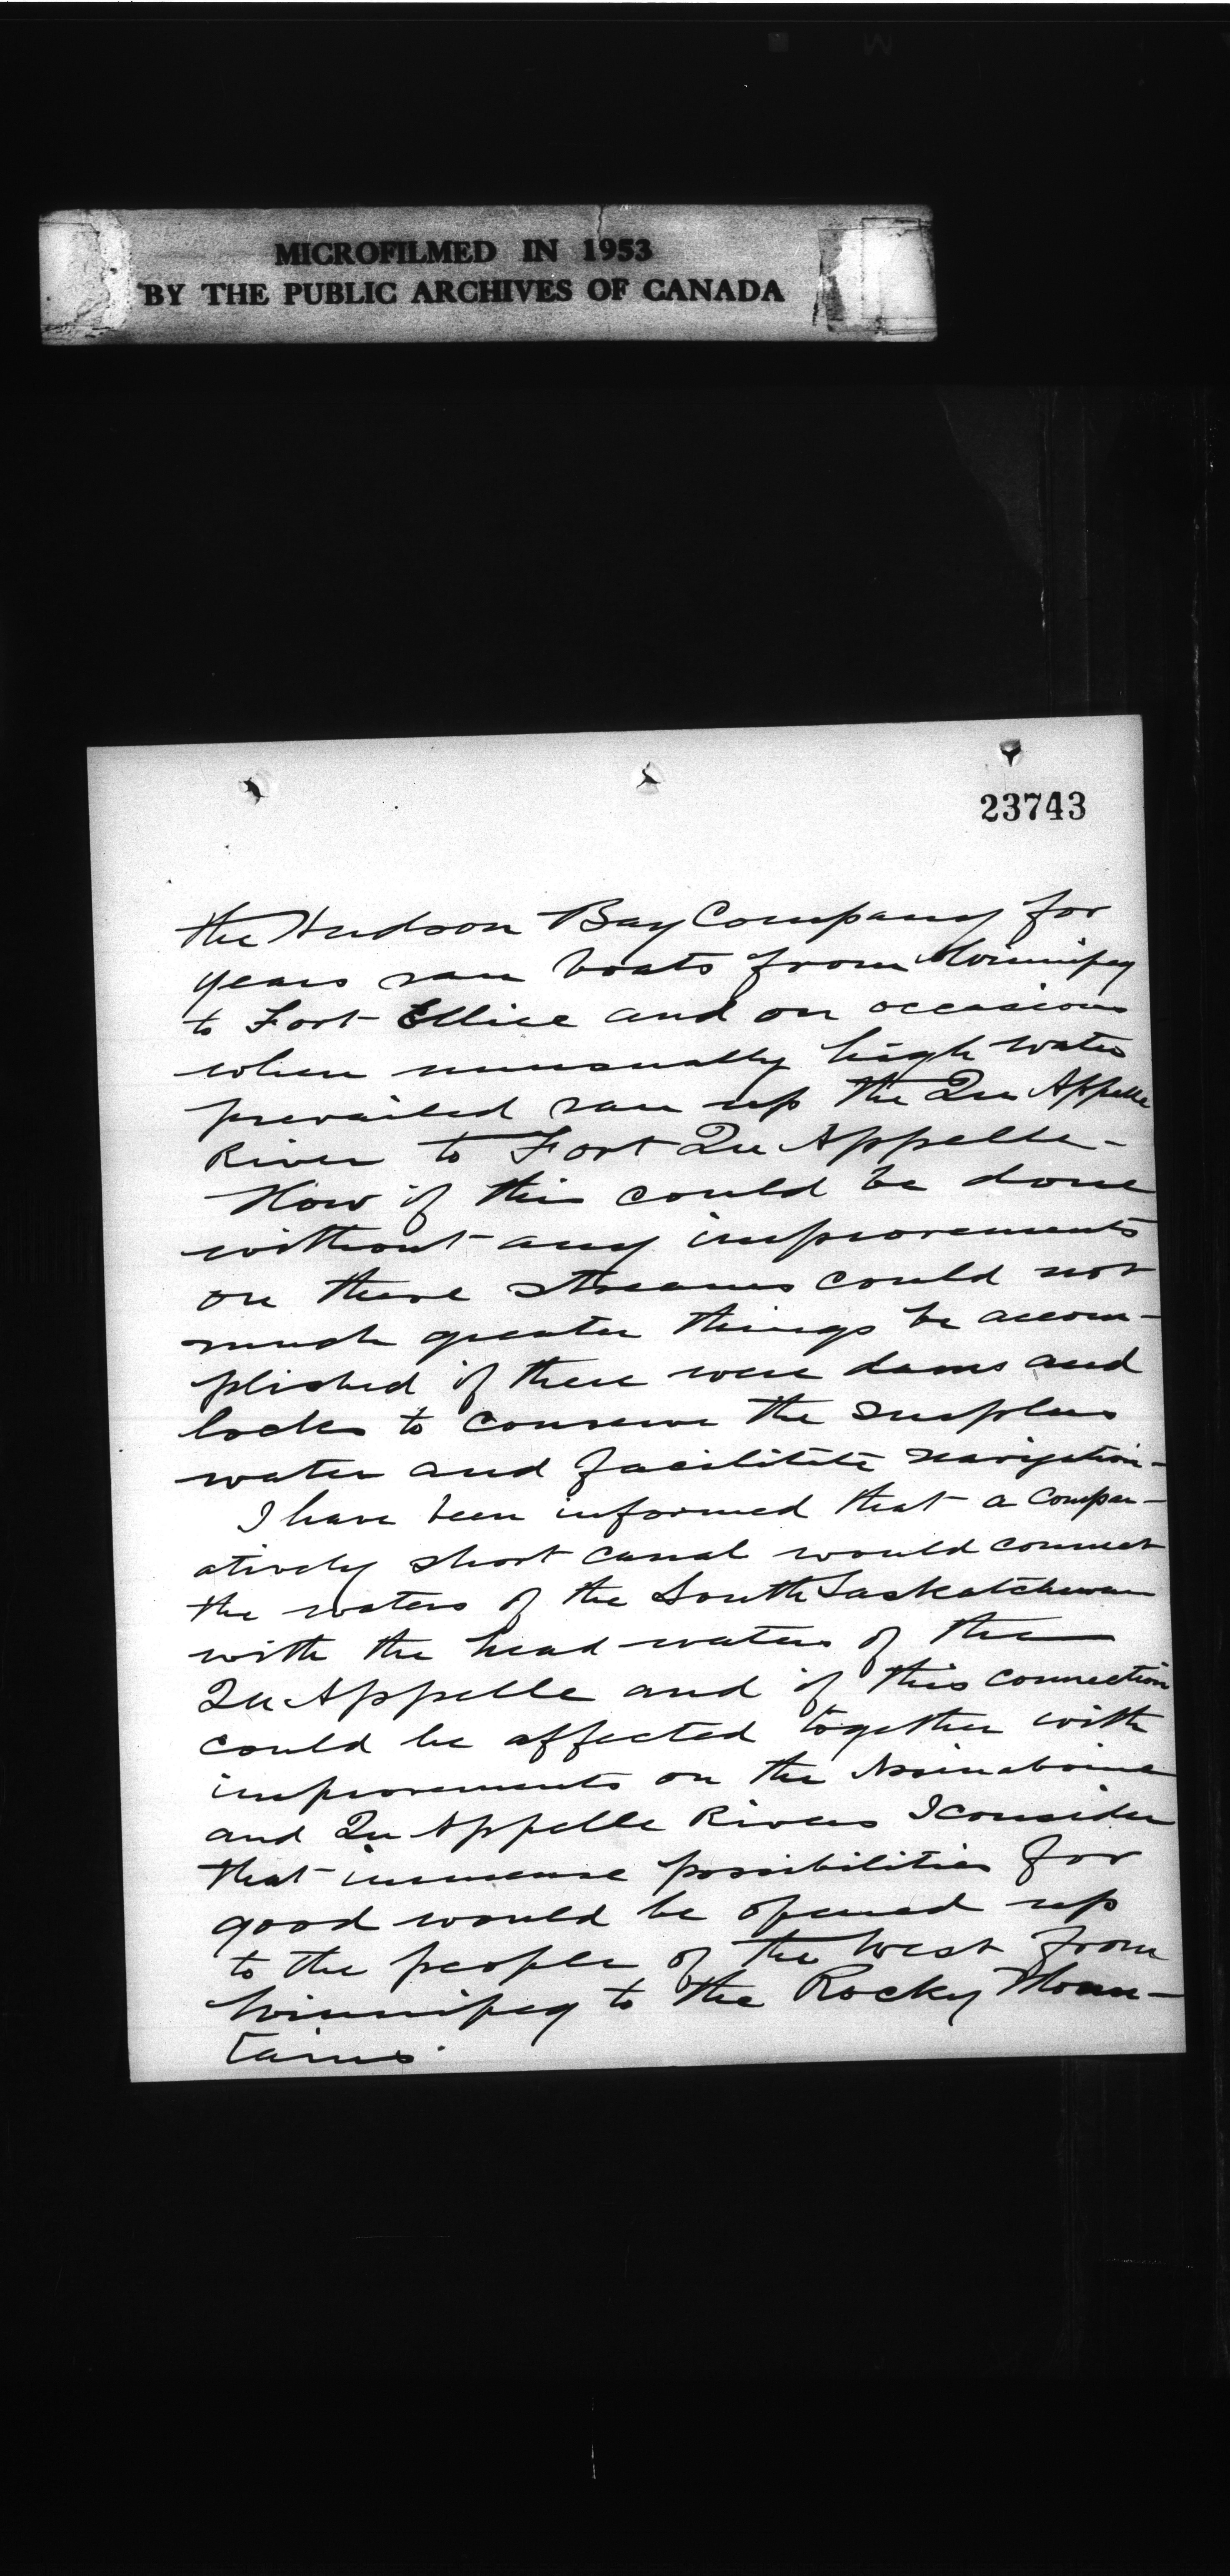 MICROFILMED IN 1953
BY THE PUBLIC ARCHIVES OF CANADA
23743
the Hudson Bay Company for
years ran boats from Winnipeg
to Fort Ellice and on occasions
when unusually high water
prevailed ran up the Qu Appelle
River to Fort Qu Appelle -
Now if this could be done
without any improvements
on these streams could not
much greater things be accom-
plished if there were dams and
locks to conserve the surplus
water and facilitite navigation -
I have been informed that a compar-
atively short canal would connect
the waters of the South Saskatchewan
with the head-waters of the
Qu Appelle and if this connection
could be affected together with
improvements on the Assinaboine
and Qu Appelle Rivers I consider
that immense possibilities for
good would be opened up
to the people of the West from
Winnipeg to the Rocky Moun-
tains.